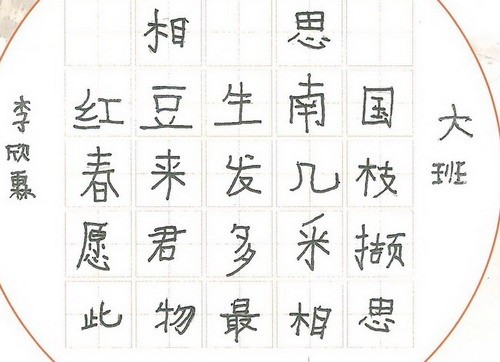 相思
红豆生南国
春来发几枝
愿君多采撷
此物最相思
大班
李欣